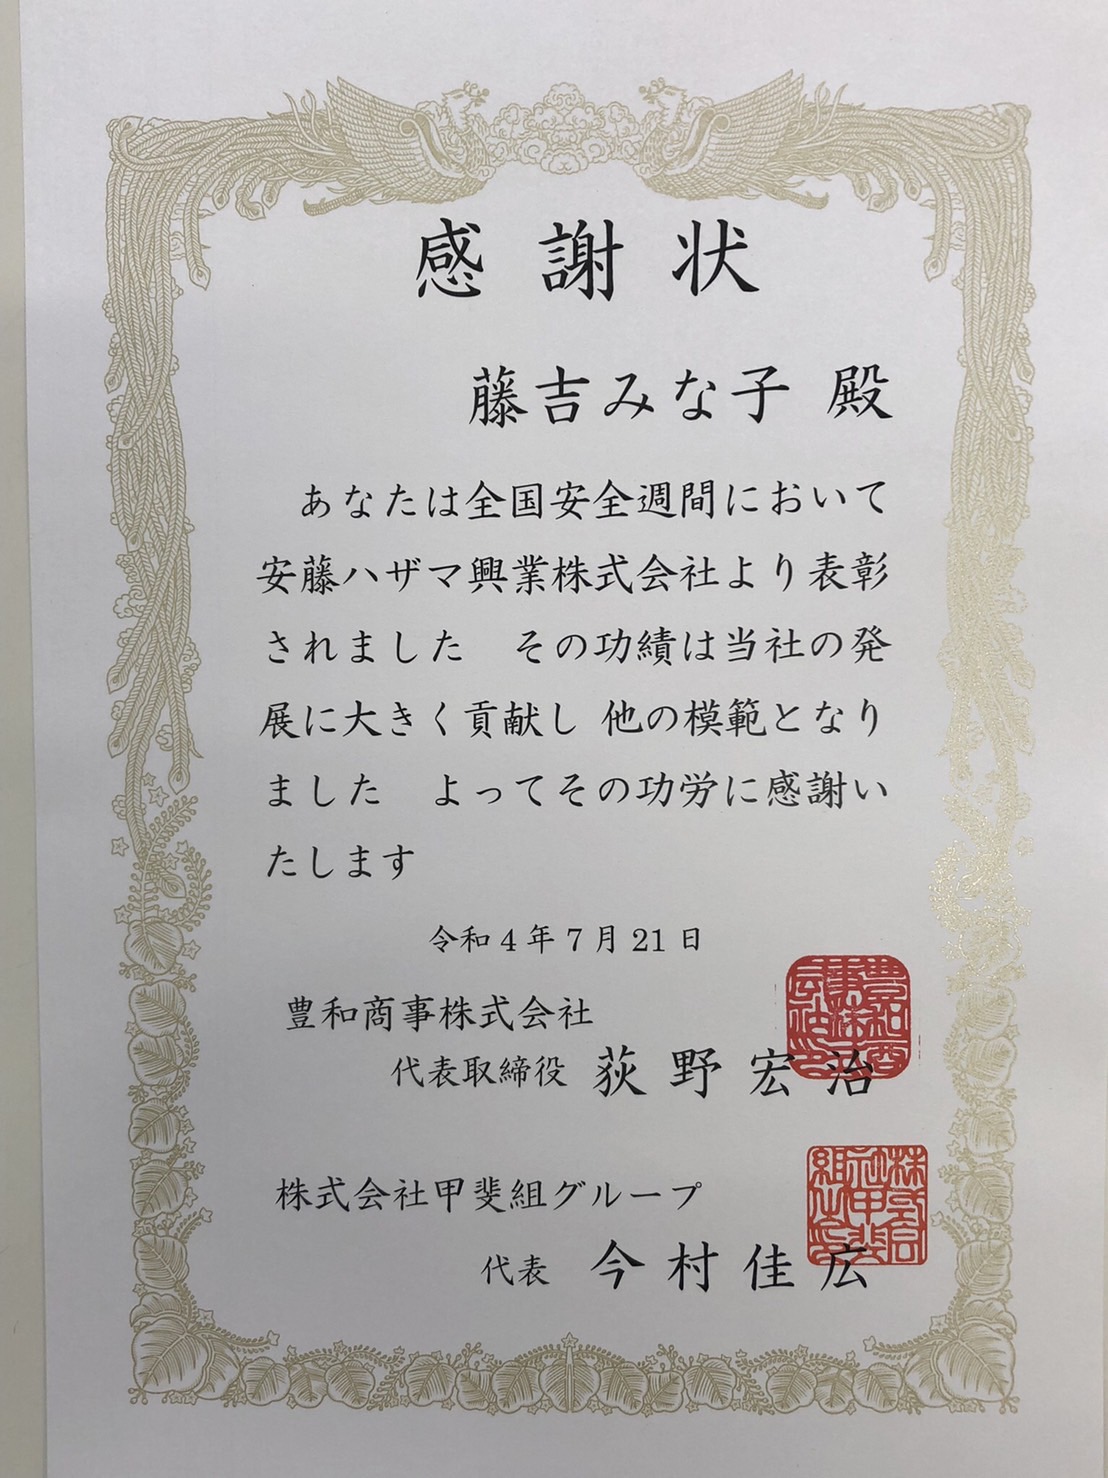 感謝状
藤吉みな子 殿
あなたは全国安全週間において
安藤ハザマ興業株式会社より表彰
されました　その功績は当社の発
展に大きく貢献し 他の模範となり
ました　よってその功労に感謝い
たします
令和4年7月21日
豊和商事株式会社
代表取締役 荻野宏治
株式会社甲斐組グループ
代表 今村佳広